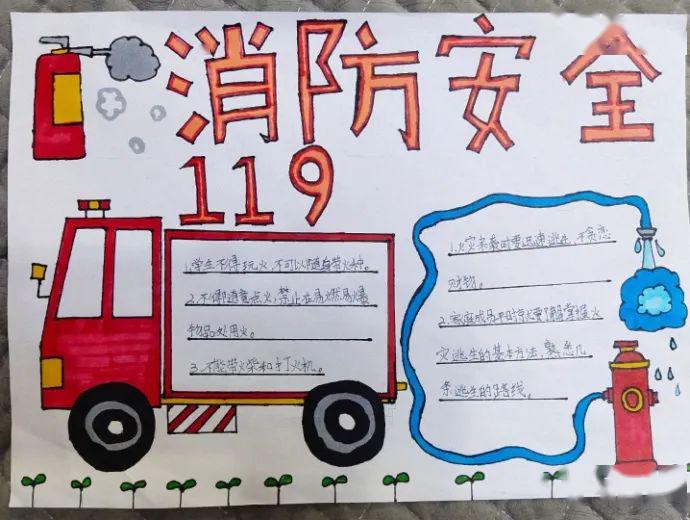 消防安全
119
1.学生不得玩火,不可以随身带火种。
2.不得随意点火,禁止在易燃易爆
物品处用火。
3.不能带火柴和打火机。
1.火灾来袭时要迅速逃生,不贪恋
财物。
2.家庭成员平时就要了解掌握火
灾逃生的基本方法,熟悉几
条逃生的路线。